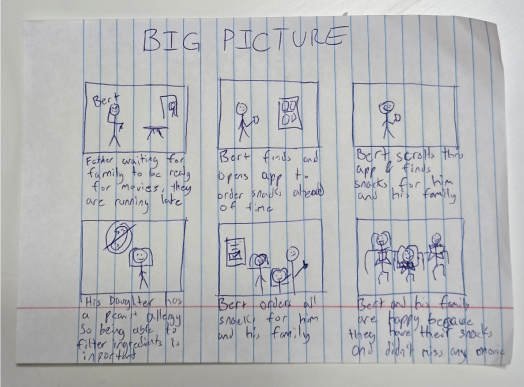 BIG PICTURE
Bert
Father waiting for
family to be ready
for movies, they
are running late
Bert finds and
opens app to
order snacks ahead
of time
Bert scrolls thru
app & finds
snacks for him
and his family
His Daughter has
a peanut allergy
so being able to
filter ingredients is
important
Bert orders all
snacks for him
and his family
Bert and his family
are happy because
they have their snacks
and didn't miss any movie